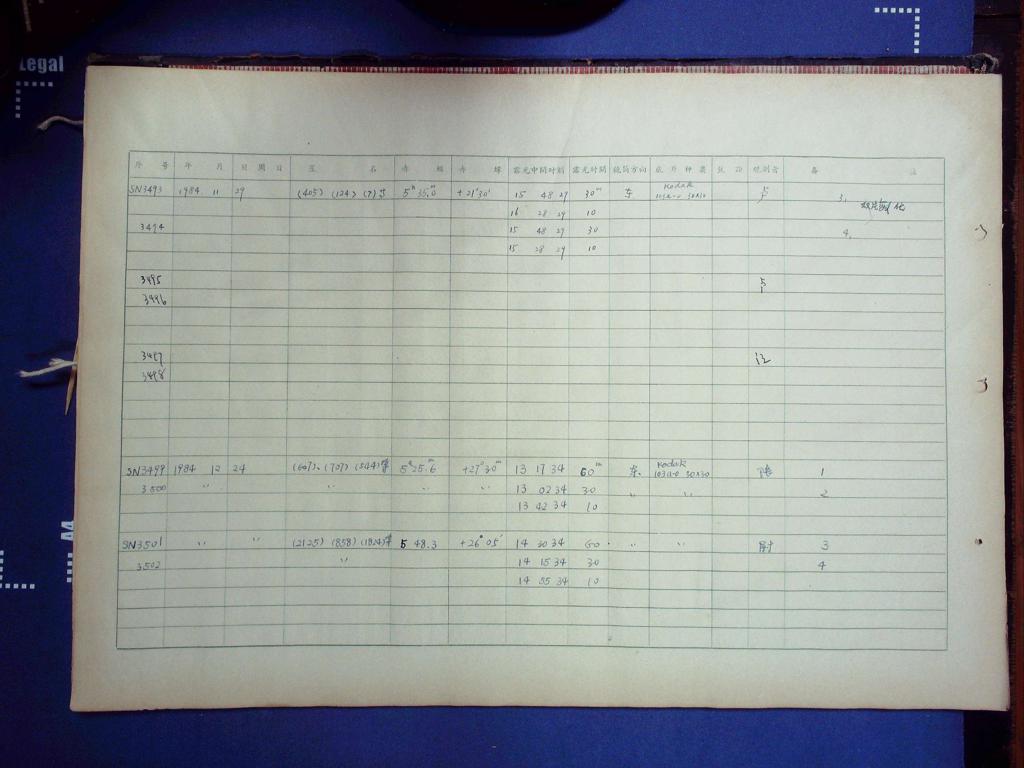 Legal
序 号 年 月 日 周 日 星 名 赤 经 赤 纬 露光中间时刻 露光时间 镜筒方向 底 片 种 类 观测者 备 注
SN3493 1984 11 29 (405) (124) (7) 等 5h 35.0m +21°30' 15 48 29 30m 东 Kodak 103a-0 30x30 3,
16 28 29 10
3494 15 48 29 30 4,
15 28 29 10
3495
3496
3497
3498
SN3499 1984 12 24 (607), (707) (544)等 5h 25.6m +27°30' 13 17 34 60m 东 Kodak 103a-0 30x30 陈 1
3500 〃 〃 〃 13 02 34 30 〃 〃 2
13 42 34 10
SN3501 〃 〃 (2125) (858) (1824)等 5 48.3 +26°05' 14 30 34 60 〃 〃 3
3502 〃 14 15 34 30 4
14 55 34 10
A4